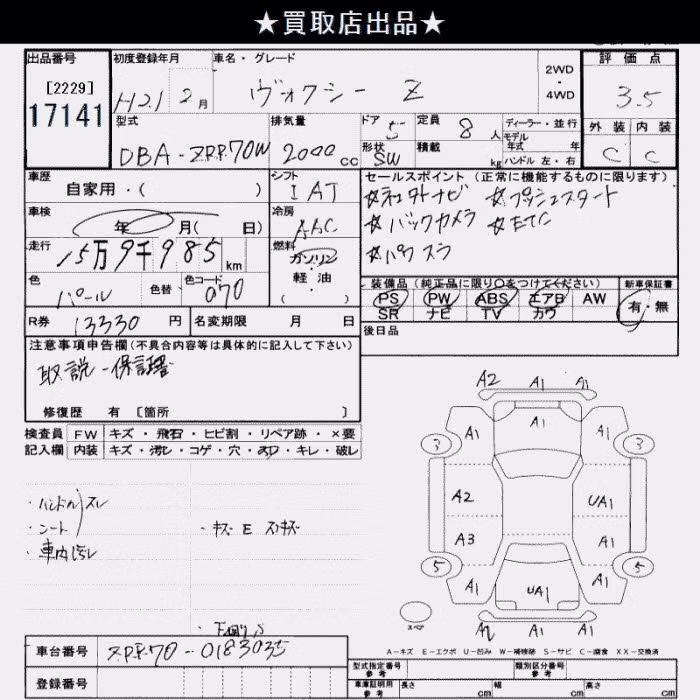 ★買取店出品★
出品番号 初度登録年月 車名・グレード 2WD・4WD 評価点
[2229]
17141 H21 2月 ヴォクシー Z 3.5
型式 排気量 ドア 5 定員 8人 ディーラー・並行 外装 内装
DBA-ZRR70W 2000cc 形状 SW 積載 kg モデル年式 年 ハンドル 左・右 C C
車歴 シフト セールスポイント(正常に機能するものに限ります)
自家用・( ) IAT ☆社外ナビ ☆プッシュスタート
車検 年 月( 日) 冷房 AAC ☆バックカメラ ☆ETC
走行 15万9千985km 燃料 ガソリン・軽油・( ) ☆パワスラ
色 パール 色替 色コード 070 装備品(純正品に限り○をつけてください) 新車保証書
PS PW ABS エアB AW 有・無
SR ナビ TV カワ
R券 13330円 名変期限 月 日 後日品
注意事項申告欄(不具合内容等は具体的に記入して下さい)
取説 保証書
修復歴 有 [箇所 ]
検査員記入欄 FW キズ・飛石・ヒビ割・リペア跡・×要
内装 キズ・汚レ・コゲ・穴・スリ・キレ・破レ
・ハンドルスレ
・シート
・車内汚レ
・キズ E
A2 A1 A1
A1 A1 A1
3 3
A2 UA1
A3 A1
5 5
A1 UA1 A1
A1 A1
スペア
A-キズ E-エクボ U-凹み W-補修跡 S-サビ C-腐食 XX-交換済
車台番号 ZRR70-0183035
登録番号
型式指定番号 参考 類別区分番号 参考
車庫証明用 参考 長さ cm 幅 cm 高さ cm